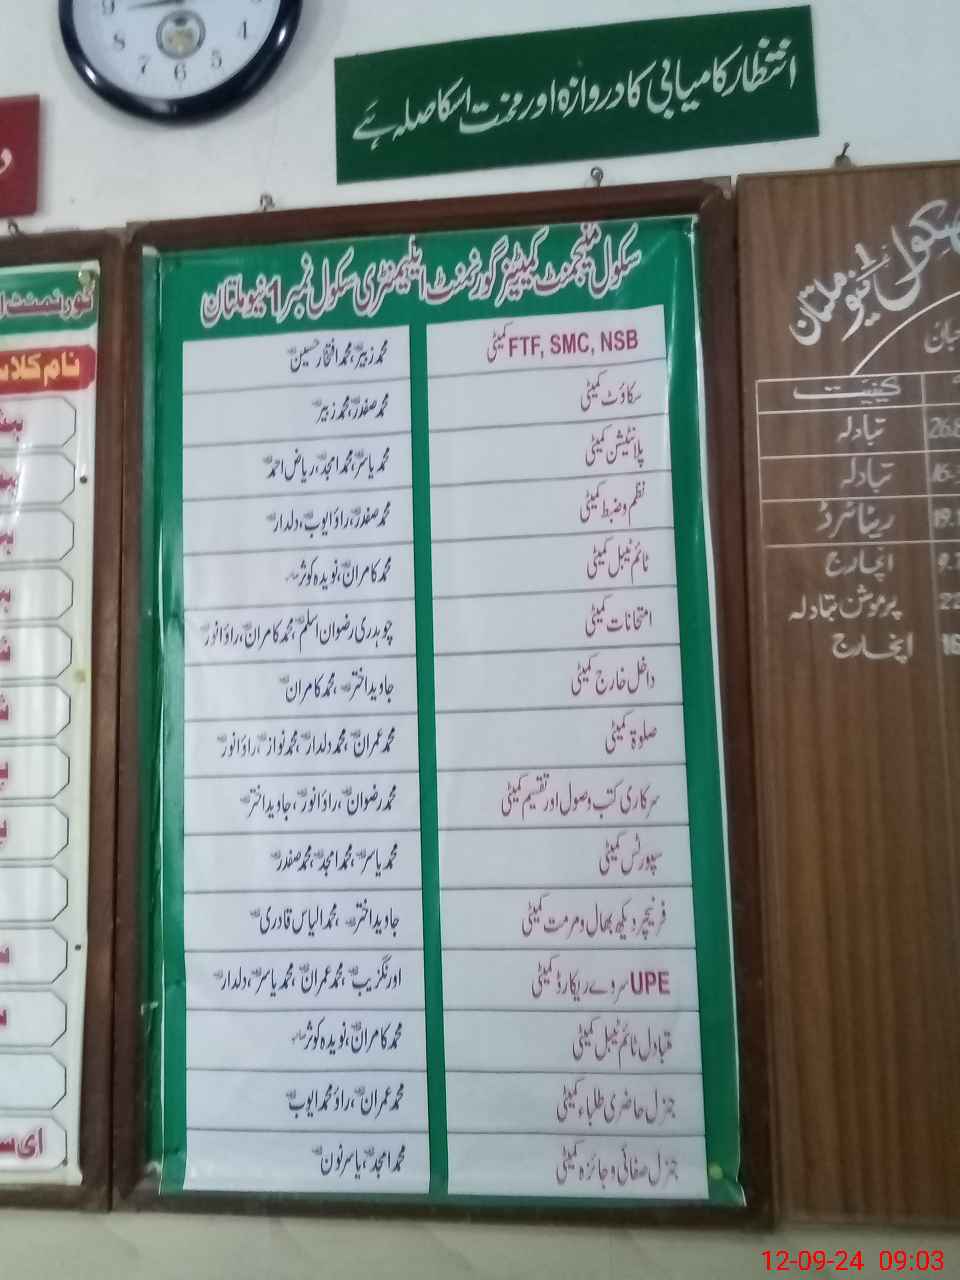 انتظار کامیابی کا دروازہ اور محنت اسکا صلہ ہے
سکول مینجمنٹ کمیٹیز گورنمنٹ ایلیمنٹری سکول نمبر 1 نیو ملتان
FTF, SMC, NSB کمیٹی محمد زبیر، محمد افتخار حسین
سکاؤٹ کمیٹی محمد صفدر، محمد زبیر
پلانٹیشن کمیٹی محمد یاسر، محمد امجد، ریاض احمد
نظم و ضبط کمیٹی محمد صفدر، راؤ ایوب، دلدار
ٹائم ٹیبل کمیٹی محمد کامران، نویدہ کوثر
امتحانات کمیٹی چوہدری رضوان اسلم، محمد کامران، راؤ انور
داخل خارج کمیٹی جاوید اختر، محمد کامران
صلوۃ کمیٹی محمد عمران، محمد دلدار، محمد نواز، راؤ انور
سرکاری کتب وصول اور تقسیم کمیٹی محمد رضوان، راؤ انور، جاوید اختر
سپورٹس کمیٹی محمد یاسر، محمد امجد، محمد صفدر
فرنیچر دیکھ بھال و مرمت کمیٹی جاوید اختر، محمد الیاس قادری
UPE سروے ریکارڈ کمیٹی اورنگزیب، محمد عمران، محمد یاسر، دلدار
متبادل ٹائم ٹیبل کمیٹی محمد کامران، نویدہ کوثر
جنرل حاضری طلباء کمیٹی محمد عمران، راؤ محمد ایوب
جنرل صفائی و جائزہ کمیٹی محمد امجد، یاسر نون
نیو ملتان
کیفیت
تبادلہ
تبادلہ
ریٹائرڈ
انچارج
پرموشن تبادلہ
انچارج
گورنمنٹ
نام کلاس
8 7 6 5 4
12-09-24 09:03